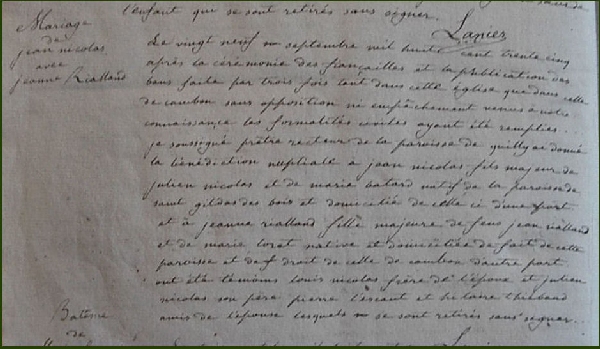 l'enfant que se sont retirés sans signer.
Lancer
Mariage
de
jean nicolas
avec
jeanne Rialland
Le vingt neuf septembre mil huit cent trente cinq
après la cérémonie des fiançailles et la publication des
bans faite par trois fois tant dans cette église que dans celle
de cambon sans opposition ni empêchement venus à notre
connaissance les formalités civiles ayant été remplies.
je soussigné prêtre recteur de la paroisse de quilly ai donné
la bénédiction nuptiale à jean nicolas fils majeur de
julien nicolas et de marie batard natif de la paroisse de
saint gildas des bois et domicilié de celle ci d'une part
et à jeanne rialland fille majeure de feus jean rialland
et de marie loret native et domiciliée de fait de cette
paroisse et de droit de celle de cambon d'autre part
ont été témoins louis nicolas frère de l'époux et julien
nicolas son père pierre lescant et hilaire thiebaud
amis de l'épouse lesquels ne se sont retirés sans signer.
Batême
de